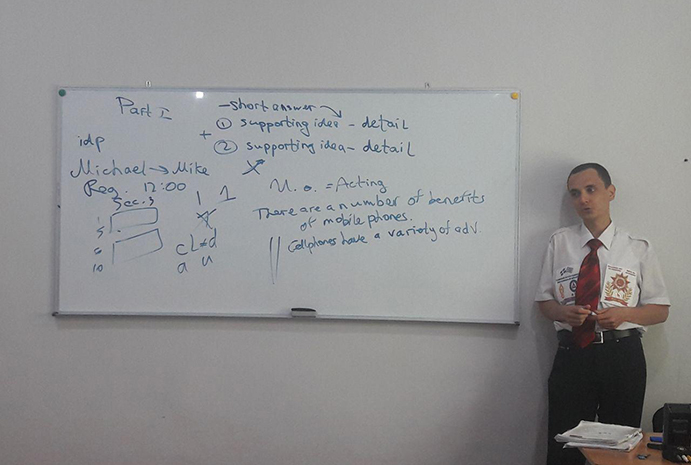 Part I
- short answer
+ ① supporting idea - detail
② supporting idea - detail
idp
Michael → Mike
Reg. 12:00
Sec. 3
1
5
6
10
1 1
cl≠d
a u
= Acting
There are a number of benefits
of mobile phones.
Cellphones have a variety of adv.